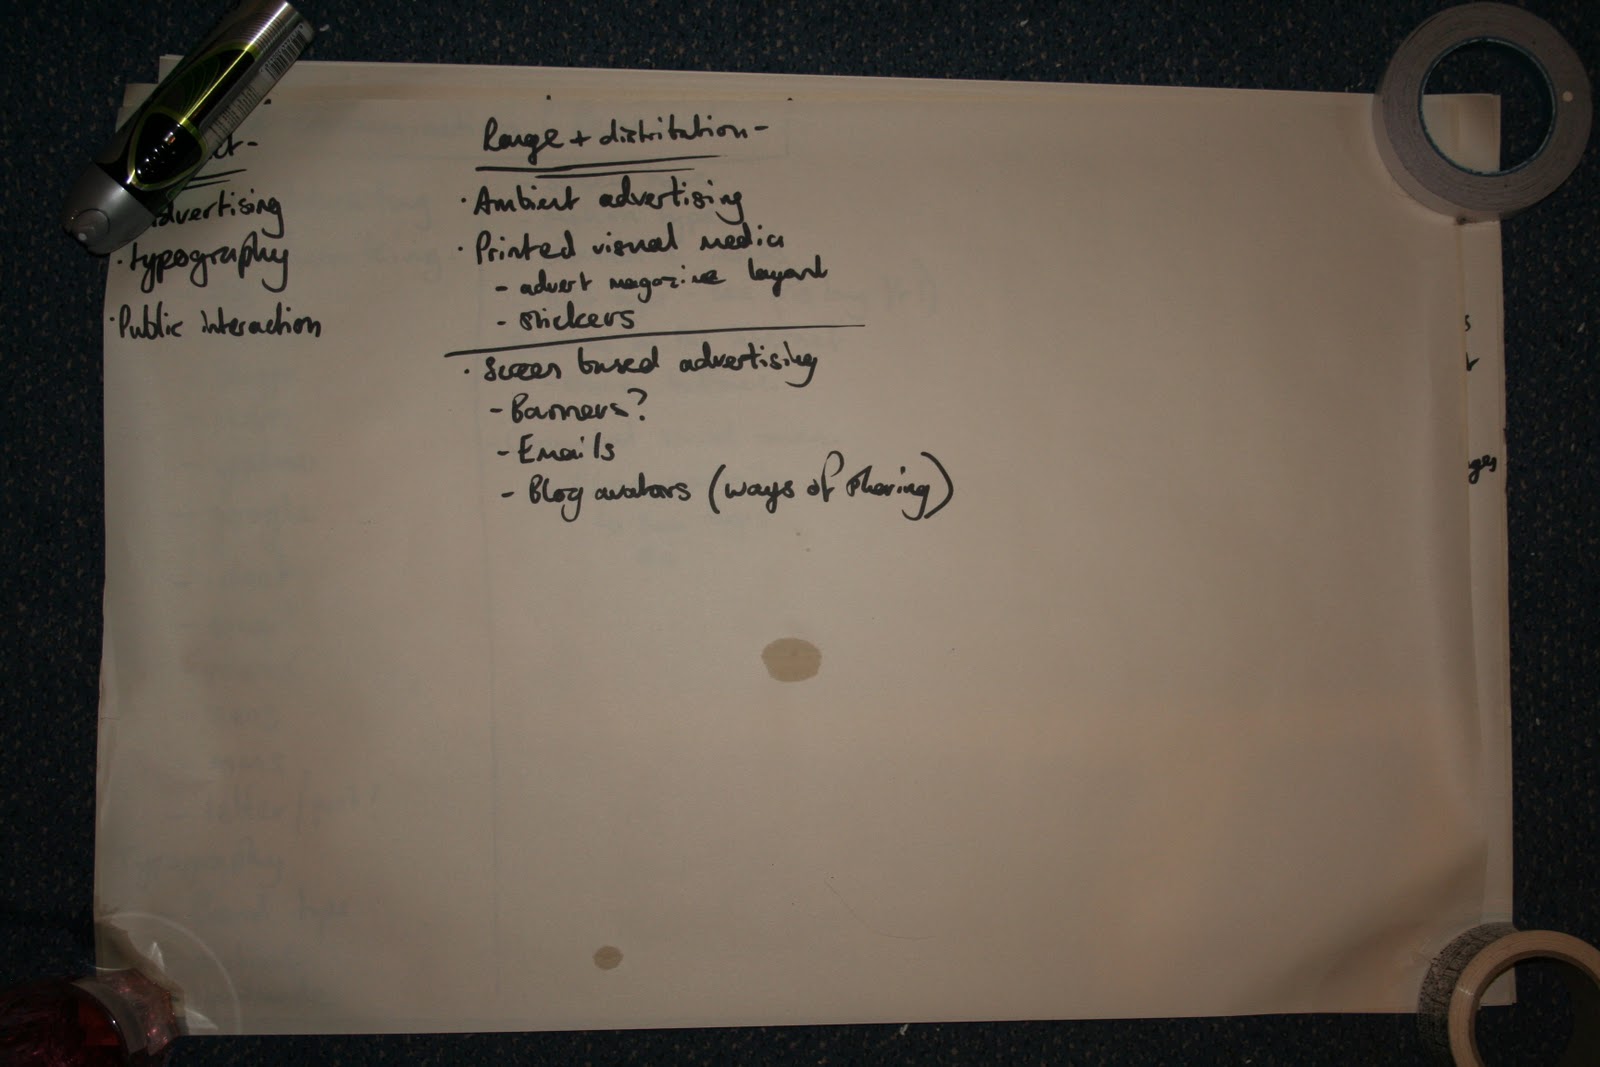 advertising
· typography
· Public interaction
Range + distribution -
· Ambient advertising
· Printed visual media
- advert magazine layout
- stickers
· Screen based advertising
- Banners?
- Emails
- Blog avatars (ways of sharing)